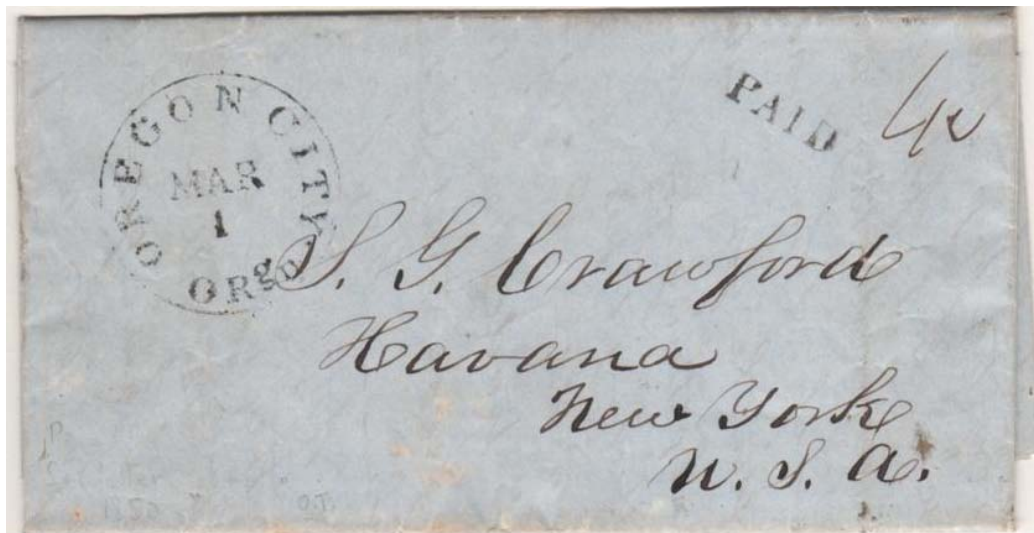 OREGON CITY
MAR
1
ORgo
PAID
40
S. G. Crawford
Havana
New York
U. S. A.
O.T.